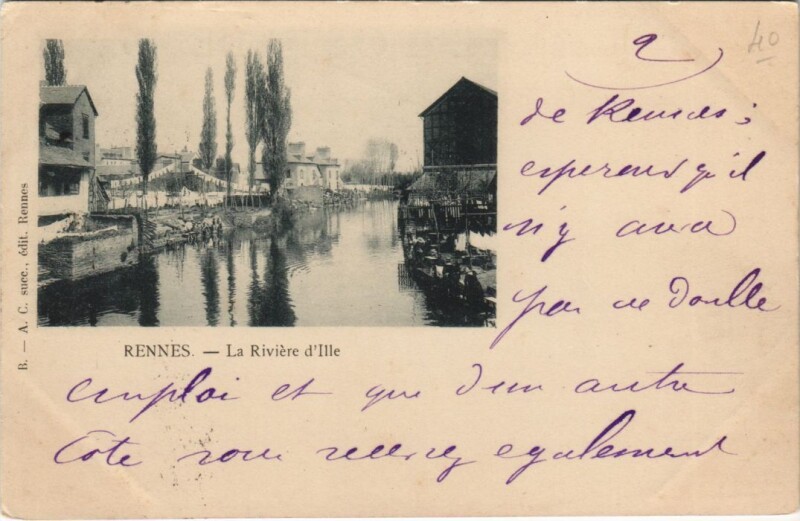 2
40
de Rennes ;
esperons qu'il
n'y aura
pas de double
emploi et que d'un autre
Côte vous recevez egalement
RENNES. — La Rivière d'Ille
B. — A. C. succ., édit. Rennes